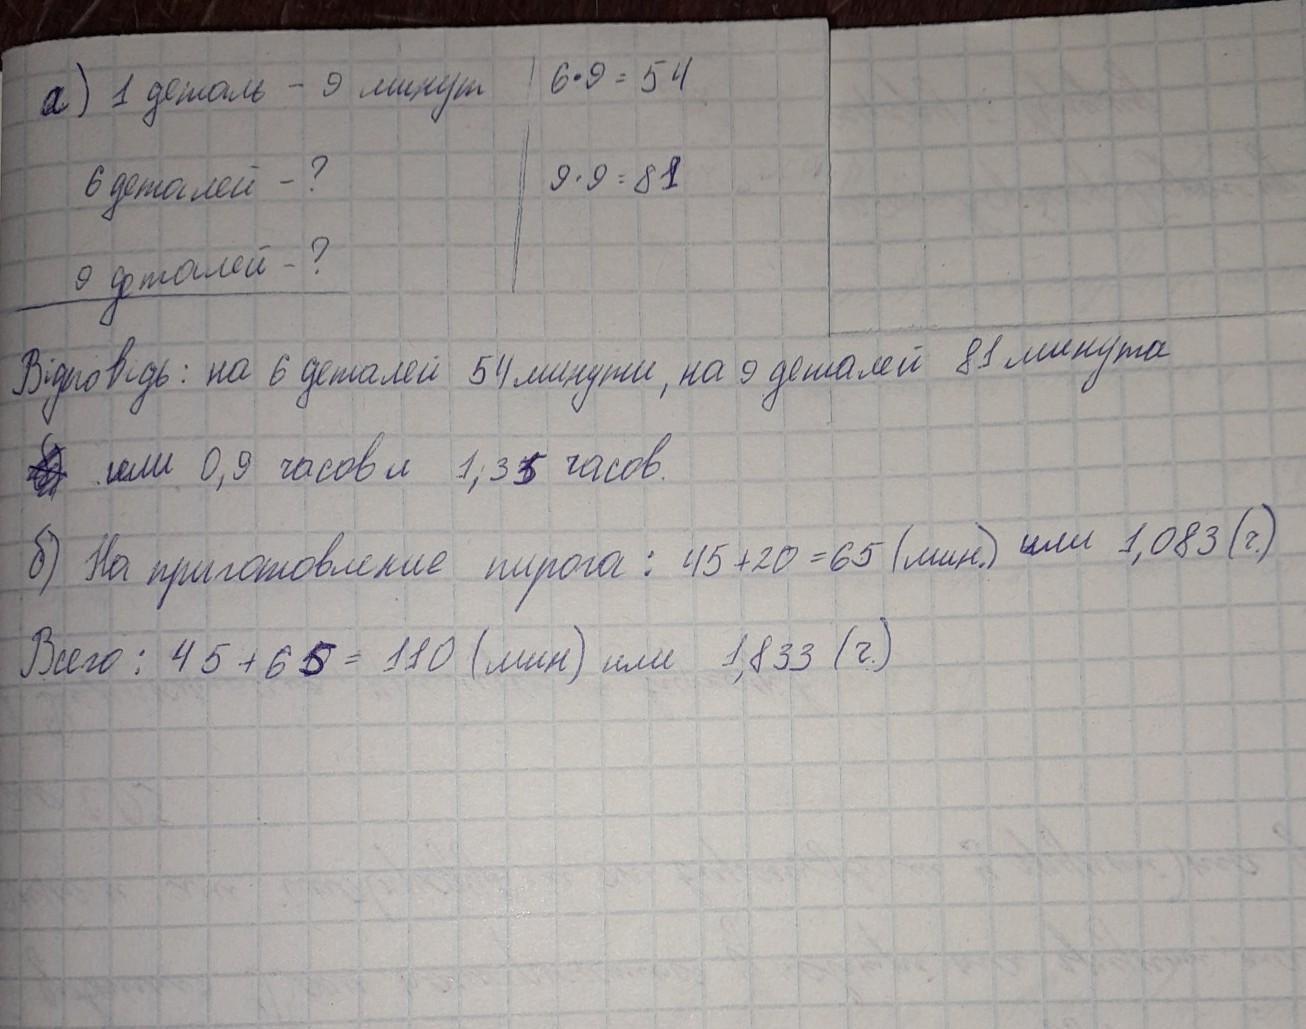 а) 1 деталь - 9 минут | 6·9=54
6 деталей - ? | 9·9=81
9 деталей - ?
Відповідь: на 6 деталей 54 минути, на 9 деталей 81 минута
или 0,9 часов и 1,35 часов.
б) На приготовление пирога: 45+20=65 (мин.) или 1,083 (г.)
Всего: 45+65=110 (мин) или 1,833 (г.)